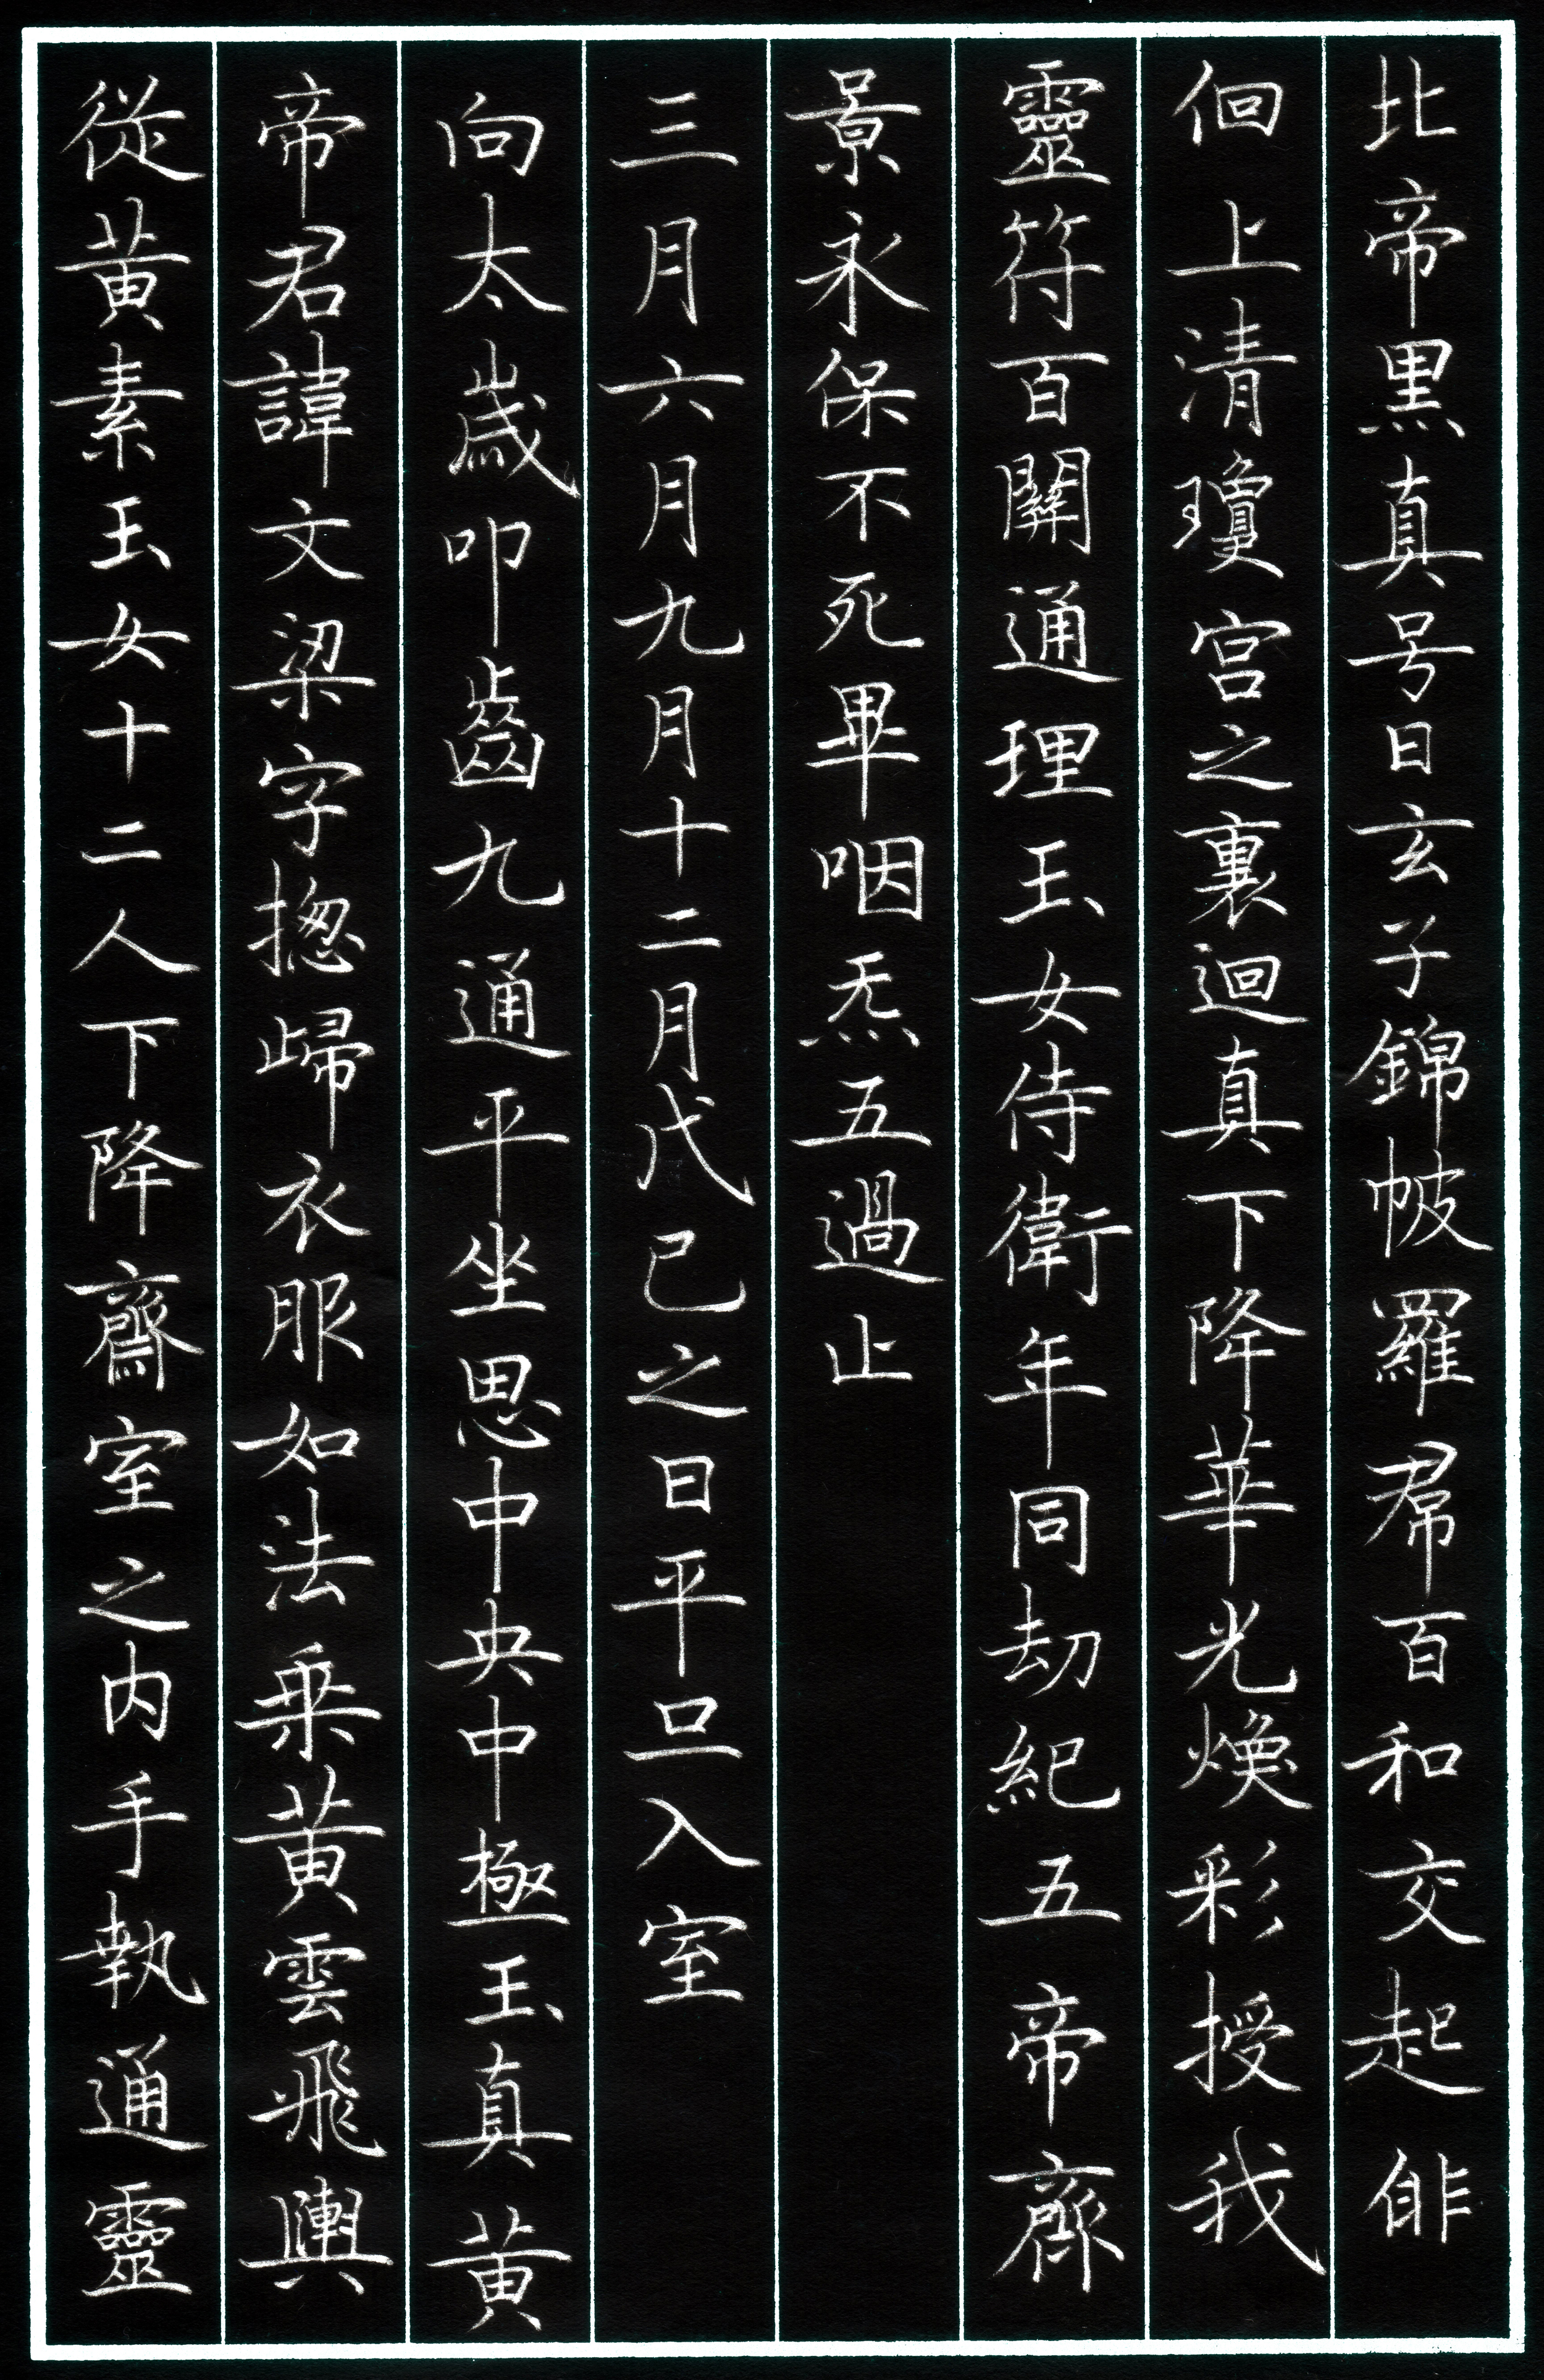 北帝黒真号曰玄子錦帔羅帬百和交起俳
佪上清瓊宮之裏迴真下降華光煥彩授我
靈符百關通理玉女侍衛年同劫紀五帝齊
景永保不死畢咽炁五過止
三月六月九月十二月戊己之日平旦入室
向太歲叩齒九通平坐思中央中極玉真黃
帝君諱文梁字揔歸衣服如法乗黃雲飛輿
從黃素玉女十二人下降齋室之内手執通靈